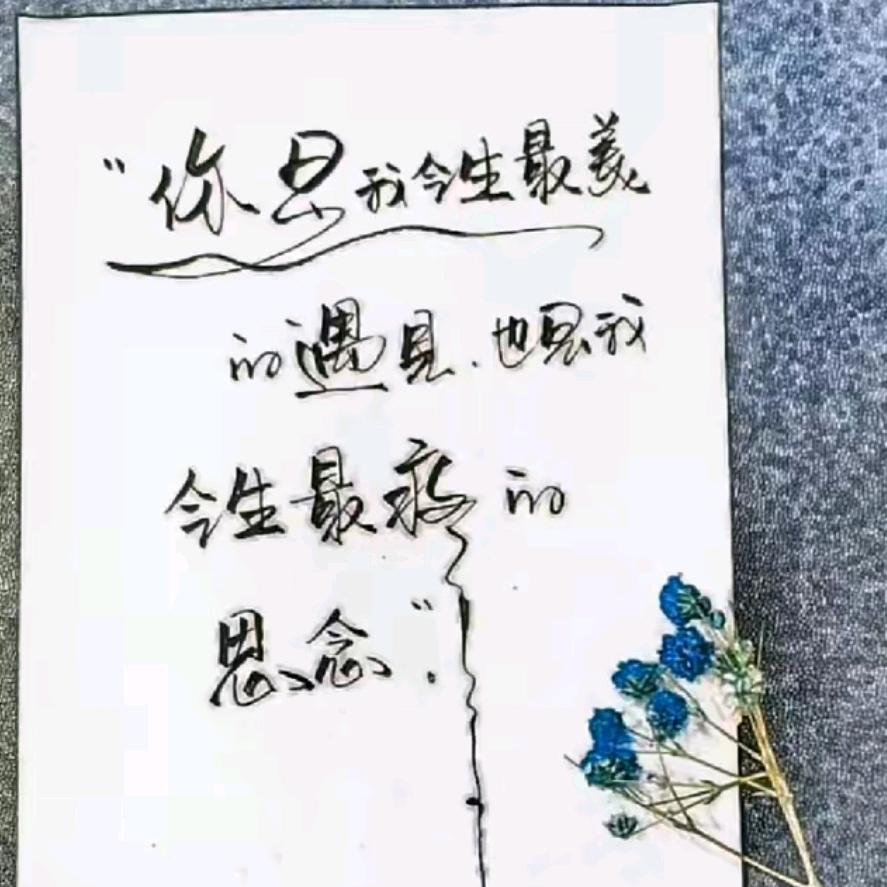 “你是我今生最美
的遇见.也是我
今生最疼的
思念”.